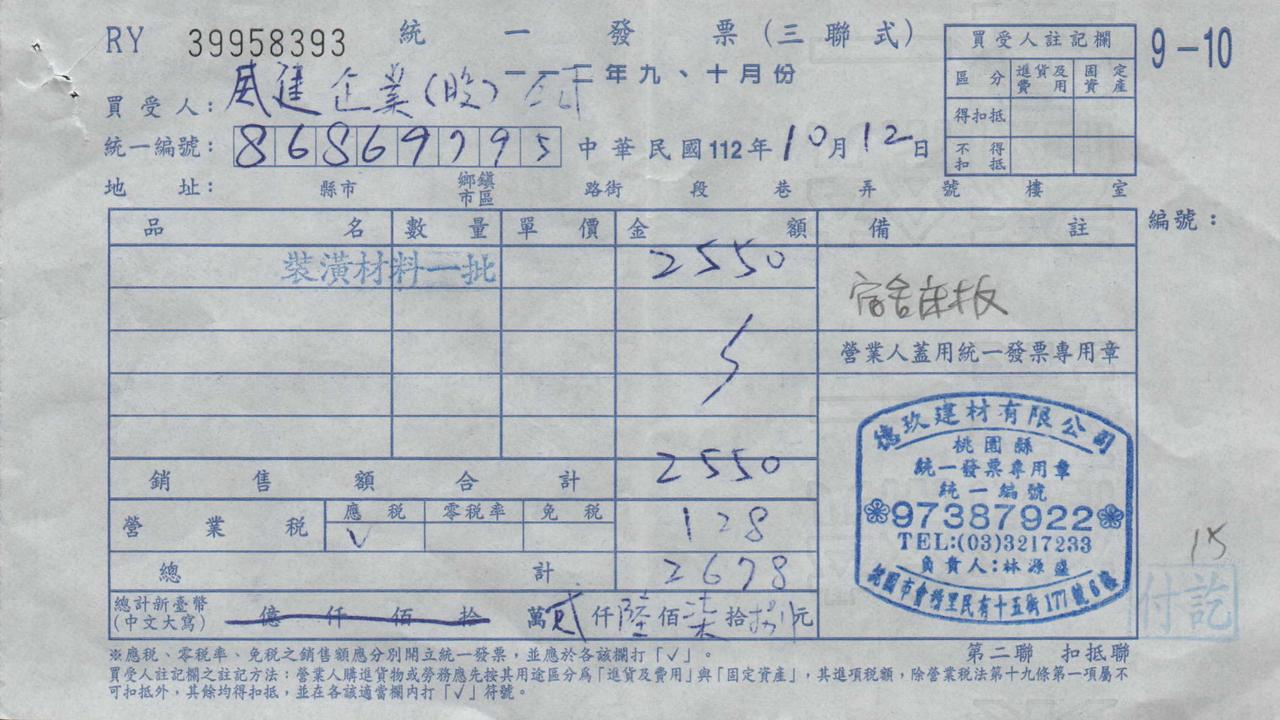 RY 39958393 統一發票(三聯式)
一一二年九、十月份
9-10
買受人註記欄
區分 進貨及費用 固定資產
得扣抵
不得扣抵
買受人: 威進企業(股)
統一編號: 86869795 中華民國112年10月12日
地址: 縣市 鄉鎮市區 路街 段 巷 弄 號 樓 室
品名 數量 單價 金額 備註 編號:
裝潢材料一批 2550
宿舍床板
營業人蓋用統一發票專用章
銷售額合計 2550
營業稅 應稅 零稅率 免稅 128
V
總計 2678
總計新臺幣(中文大寫) 億仟佰拾萬貳仟陸佰柒拾捌元
德玖建材有限公司
桃園縣
統一發票專用章
統一編號
97387922
TEL:(03)3217233
負責人:林源盛
桃園市會稽里民有十五街177號6樓
15
付訖
第二聯 扣抵聯
※應稅、零稅率、免稅之銷售額應分別開立統一發票,並應於各該欄打「√」。
買受人註記欄之註記方法:營業人購進貨物或勞務應先按其用途區分為「進貨及費用」與「固定資產」,其進項稅額,除營業稅法第十九條第一項屬不
可扣抵外,其餘均得扣抵,並在各該適當欄內打「√」符號。